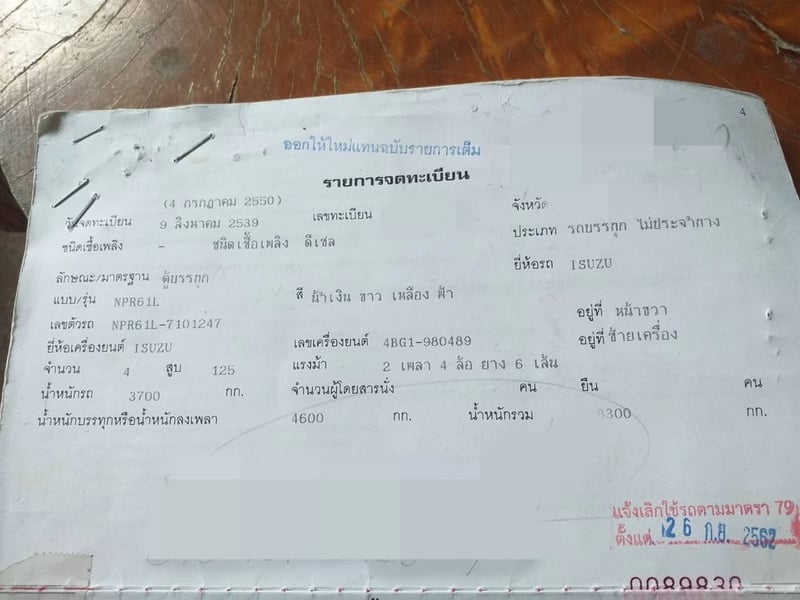 4
ออกให้ใหม่แทนฉบับรายการเต็ม
รายการจดทะเบียน
(4 กรกฎาคม 2550)
วันจดทะเบียน 9 สิงหาคม 2539 เลขทะเบียน จังหวัด
ชนิดเชื้อเพลิง - ชนิดเชื้อเพลิง ดีเซล ประเภท รถบรรทุก ไม่ประจำทาง
ยี่ห้อรถ ISUZU
ลักษณะ/มาตรฐาน ตู้บรรทุก
แบบ/รุ่น NPR61L สี น้ำเงิน ขาว เหลือง ฟ้า
เลขตัวรถ NPR61L-7101247 อยู่ที่ หน้าขวา
ยี่ห้อเครื่องยนต์ ISUZU เลขเครื่องยนต์ 4BG1-980489 อยู่ที่ ซ้ายเครื่อง
จำนวน 4 สูบ 125 แรงม้า 2 เพลา 4 ล้อ ยาง 6 เส้น
น้ำหนักรถ 3700 กก. จำนวนผู้โดยสารนั่ง คน ยืน คน
น้ำหนักบรรทุกหรือน้ำหนักลงเพลา 4600 กก. น้ำหนักรวม 8300 กก.
แจ้งเลิกใช้รถตามมาตรา 79
ตั้งแต่ 26 ก.ย. 2562
0089830